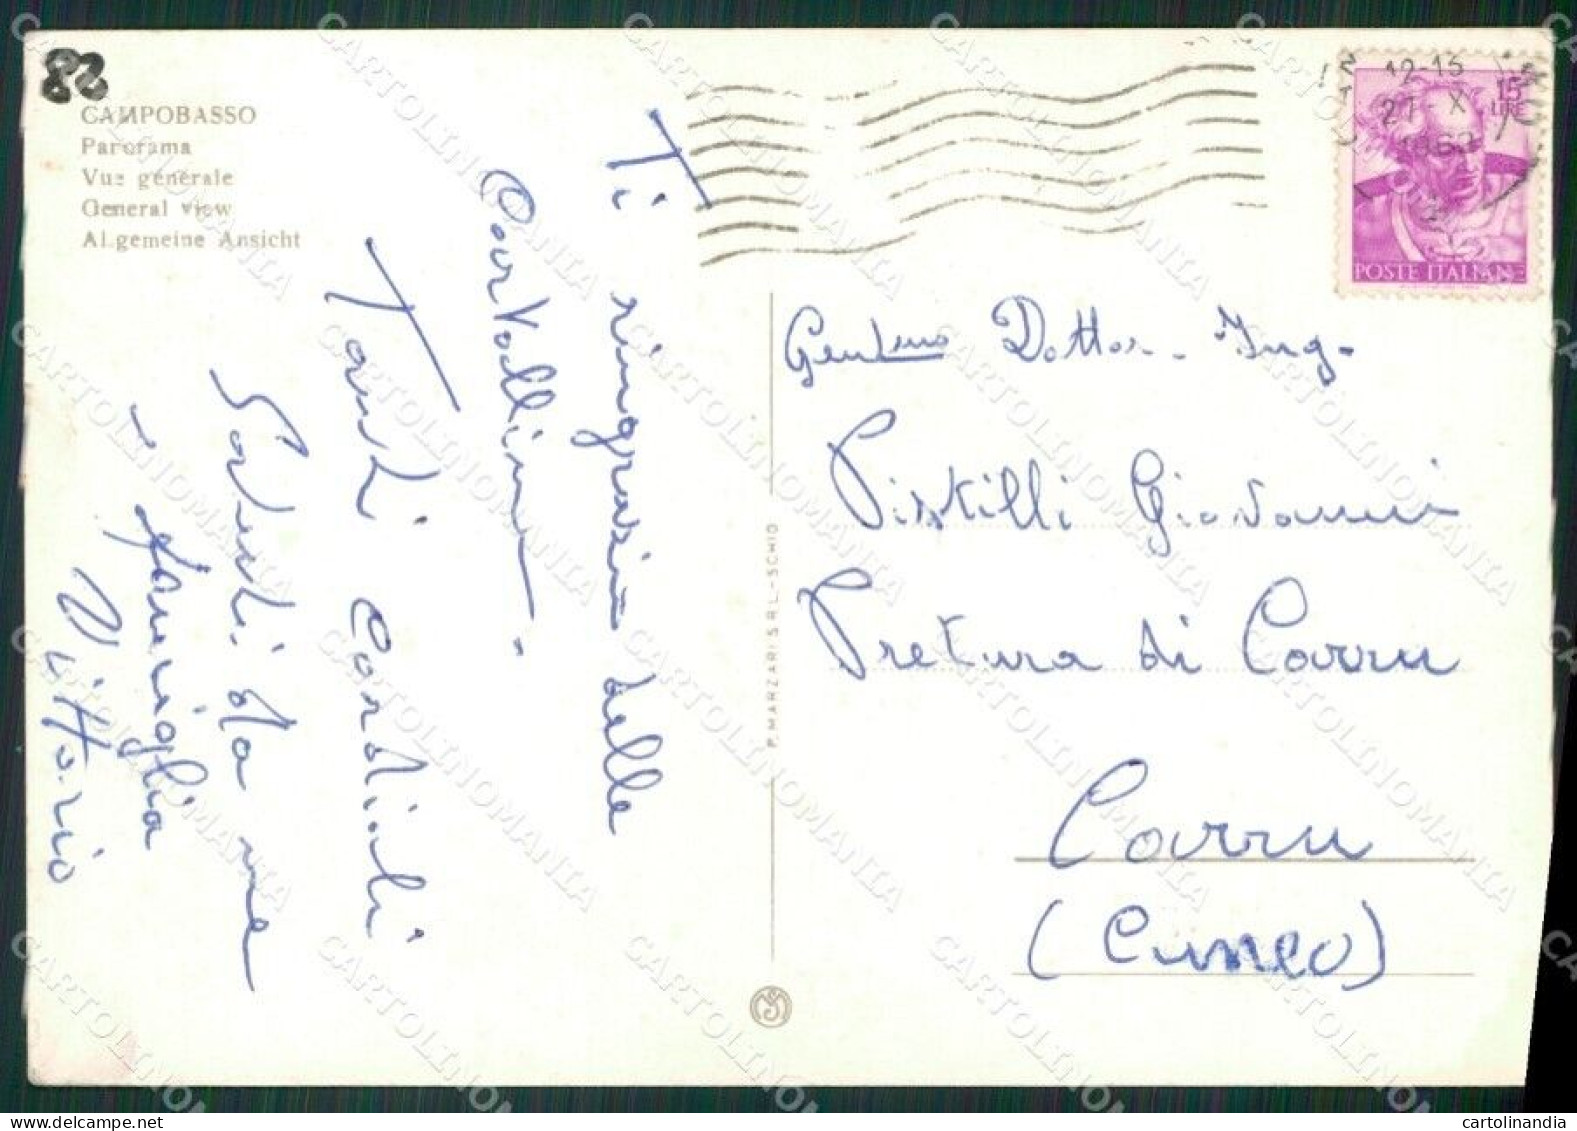 82
CAMPOBASSO
Panorama
Vue générale
General view
Allgemeine Ansicht
Ti ringrazio delle
Cartoline.
Tanti cordiali
Saluti da me
e famiglia
Vittorio
P. MARZARI S.R.L. - SCHIO
12-15
27 X
15
LIRE
POSTE ITALIANE
Gentmo Dottor. Ing.
Pistilli Giovanni
Pretura di Carru
Carru
(Cuneo)
CARTOLINOMANIA
cartolinandia